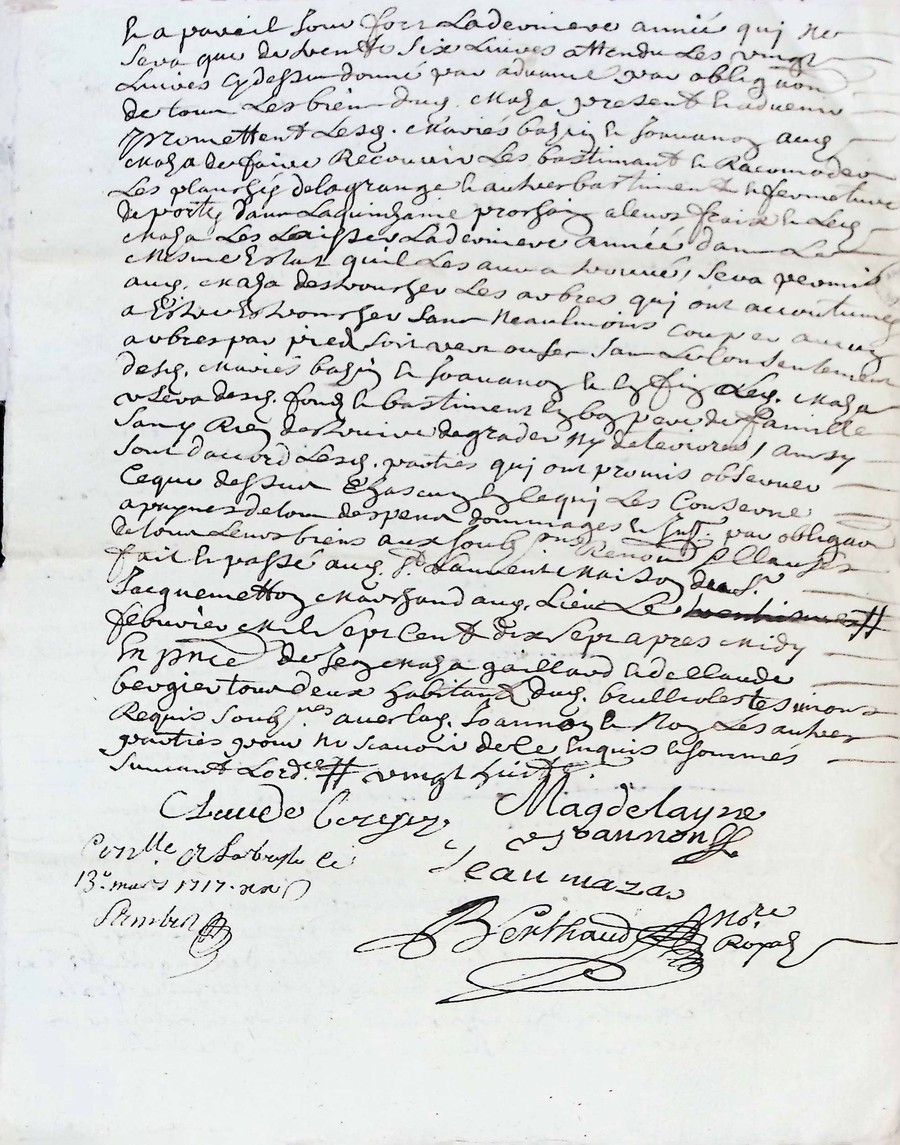 Et a pareil jour fors La derniere année qui ne
Sera que de trente Six Livres attendu Les vingt
Livres Cy dessus donné par advance par obligaon
de tous Les biens dud. Maza present et advenir
promettent Lesd. Mariés bazin et Joannon aud.
Maza de faire Recouvrir Les bastimant et Racomoder
Les planchés de la grange et autres bastiment et fermeture
de portes dans La quinzaine prochain a leurs fraix et Led.
Maza Les Laisser La derniere année dans Le
Mesme Estat qu'il Les aura trouvé, Sera permis
aud. Maza d'estroncher Les arbres qui ont accoutumés
a Estre Estroncher sans Neaulmoins Couper aucun
arbres par pied soit vert ou sec sans Le Consentement
desd. Mariés bazin et Joannon et Enfin Led. Maza
usera desd. fonds et bastiment En bon pere de famille
sans y Rien destruire degrader Ny deteriorer, ainsy
sont d'accord Lesd. parties qui ont promis observer
Ce que dessus Chascun En Ce qui Les Conserne
a paynes de tous despens dommages et Int. par obligaon
de tous Leurs biens aux Soub. Renon. Clauses
fait et passé aud. St Laurent Maison du Sr.
Jacquemetton Marchand aud. Lieu Le #
febvrier Mil Sept Cent dix Sept apres Midy
En pnce de Jean Maza gaillard et de Claude
bergier tous deux habitant dud. brullioles tesmoins
Requis Soub.nés avec lad. Joannon et Non Les autres
parties pour Ne Scavoir de Ce Enquis et sommés
suivant L'ord.ce # vingt huit.
Claude bergier Magdelayne
Joannon
Con.lle a Larbresle le
Jean maza
13e mars 1717.
Berthaud Nore
Royal